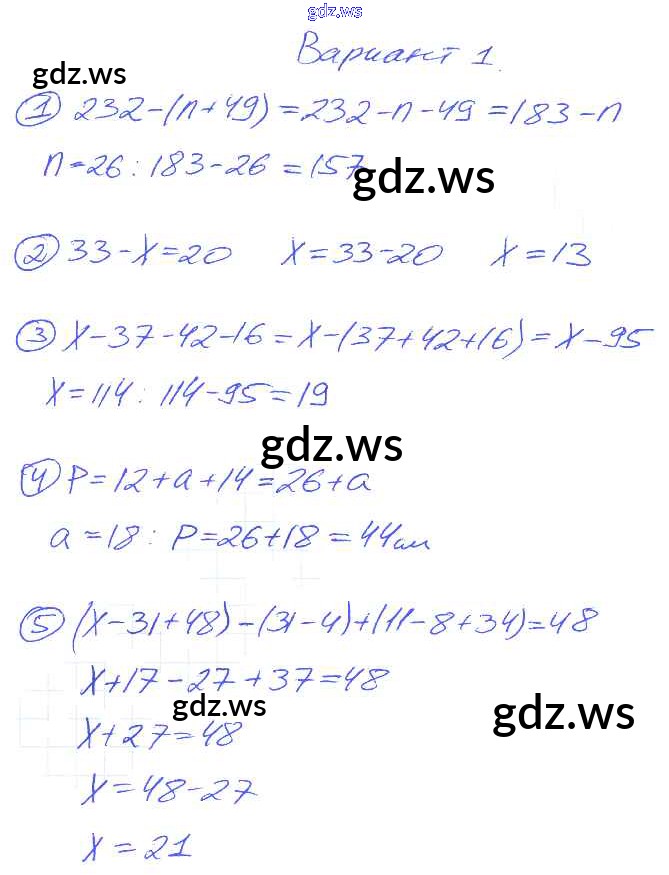 gdz.ws
Вариант 1.
gdz.ws
① 232-(n+49)=232-n-49=183-n
n=26: 183-26=157
gdz.ws
② 33-x=20 x=33-20 x=13
③ x-37-42-16=x-(37+42+16)=x-95
x=114: 114-95=19
gdz.ws
④ P=12+a+14=26+a
a=18: P=26+18=44см
⑤ (x-31+48)-(31-4)+(11-8+34)=48
x+17-27+37=48
gdz.ws
gdz.ws
x+27=48
x=48-27
x=21